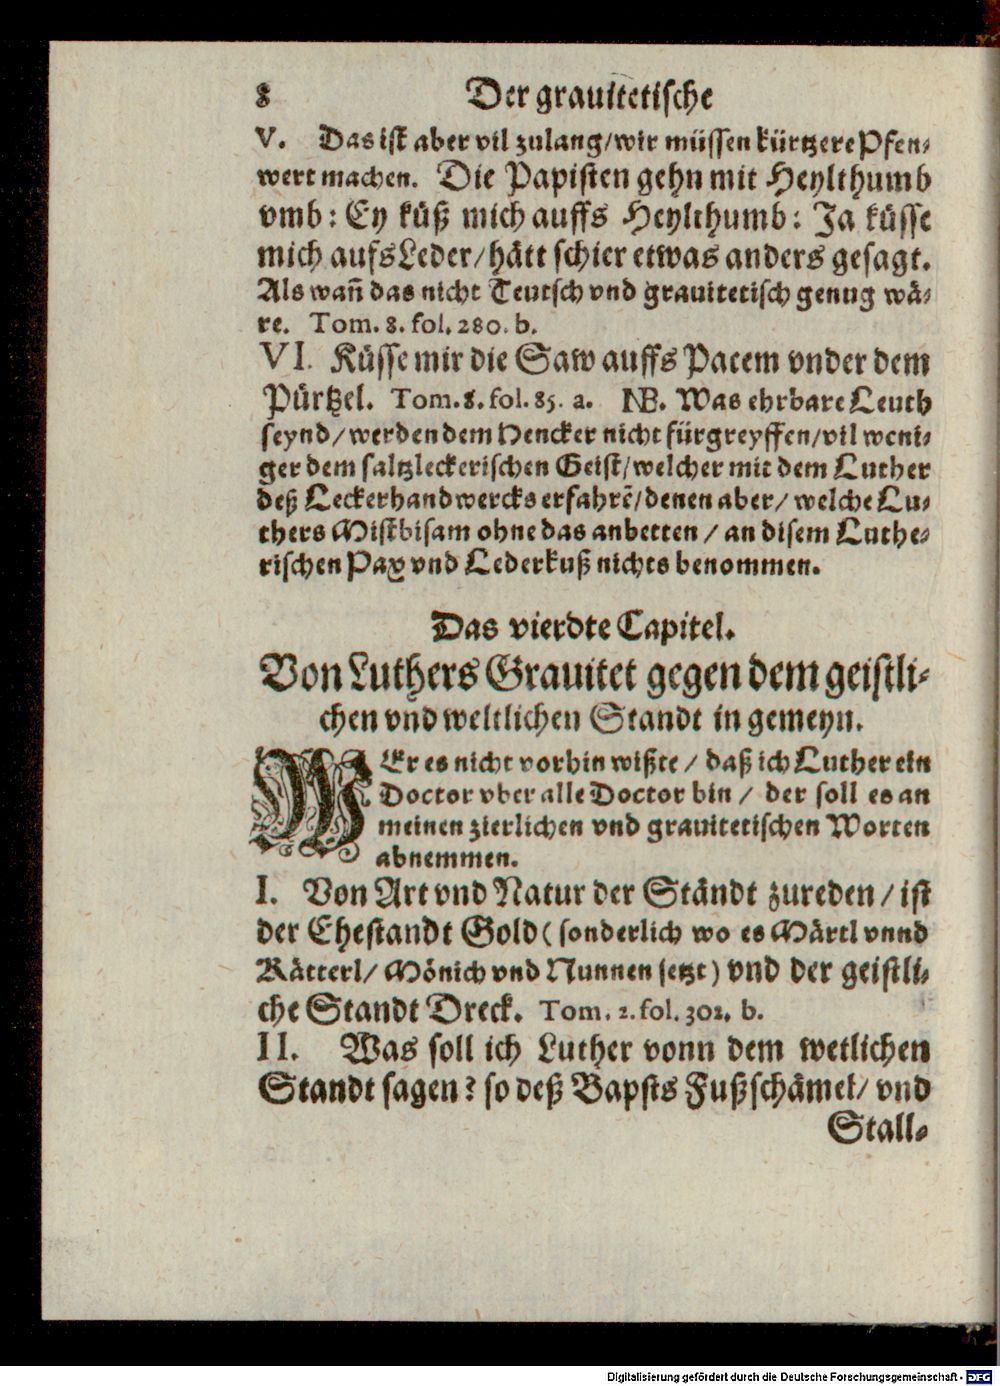 8 Der grauitetische
V. Das ist aber vil zulang/wir müssen kürtzere Pfen-
wert machen. Die Papisten gehn mit Heylthumb
vmb: Ey küß mich auffs Heylthumb: Ja küsse
mich aufs Leder/hätt schier etwas anders gesagt.
Als wañ das nicht Teutsch vnd grauitetisch genug wä-
re. Tom. 8. fol. 280. b.
VI. Küsse mir die Saw auffs Pacem vnder dem
Pürtzel. Tom. 8. fol. 85. a. NB. Was ehrbare Leuth
seynd/werden dem Hencker nicht fürgreyffen/vil weni-
ger dem saltzleckerischen Geist/welcher mit dem Luther
deß Leckerhandwercks erfahrẽ/denen aber/welche Lu-
thers Mistbisam ohne das anbetten/an disem Luthe-
rischen Pax vnd Lederkuß nichts benommen.
Das vierdte Capitel.
Von Luthers Grauitet gegen dem geistli-
chen vnd weltlichen Standt in gemeyn.
WEr es nicht vorhin wißte/daß ich Luther ein
Doctor vber alle Doctor bin/der soll es an
meinen zierlichen vnd grauitetischen Worten
abnemmen.
I. Von Art vnd Natur der Ständt zureden/ist
der Ehestandt Gold (sonderlich wo es Märtl vnnd
Kätterl/Mönich vnd Nunnen setzt) vnd der geistli-
che Standt Dreck. Tom. 2. fol. 302. b.
II. Was soll ich Luther vonn dem wetlichen
Standt sagen? so deß Bapsts Fußschämel/vnd
Stall-
Digitalisierung gefördert durch die Deutsche Forschungsgemeinschaft - DFG